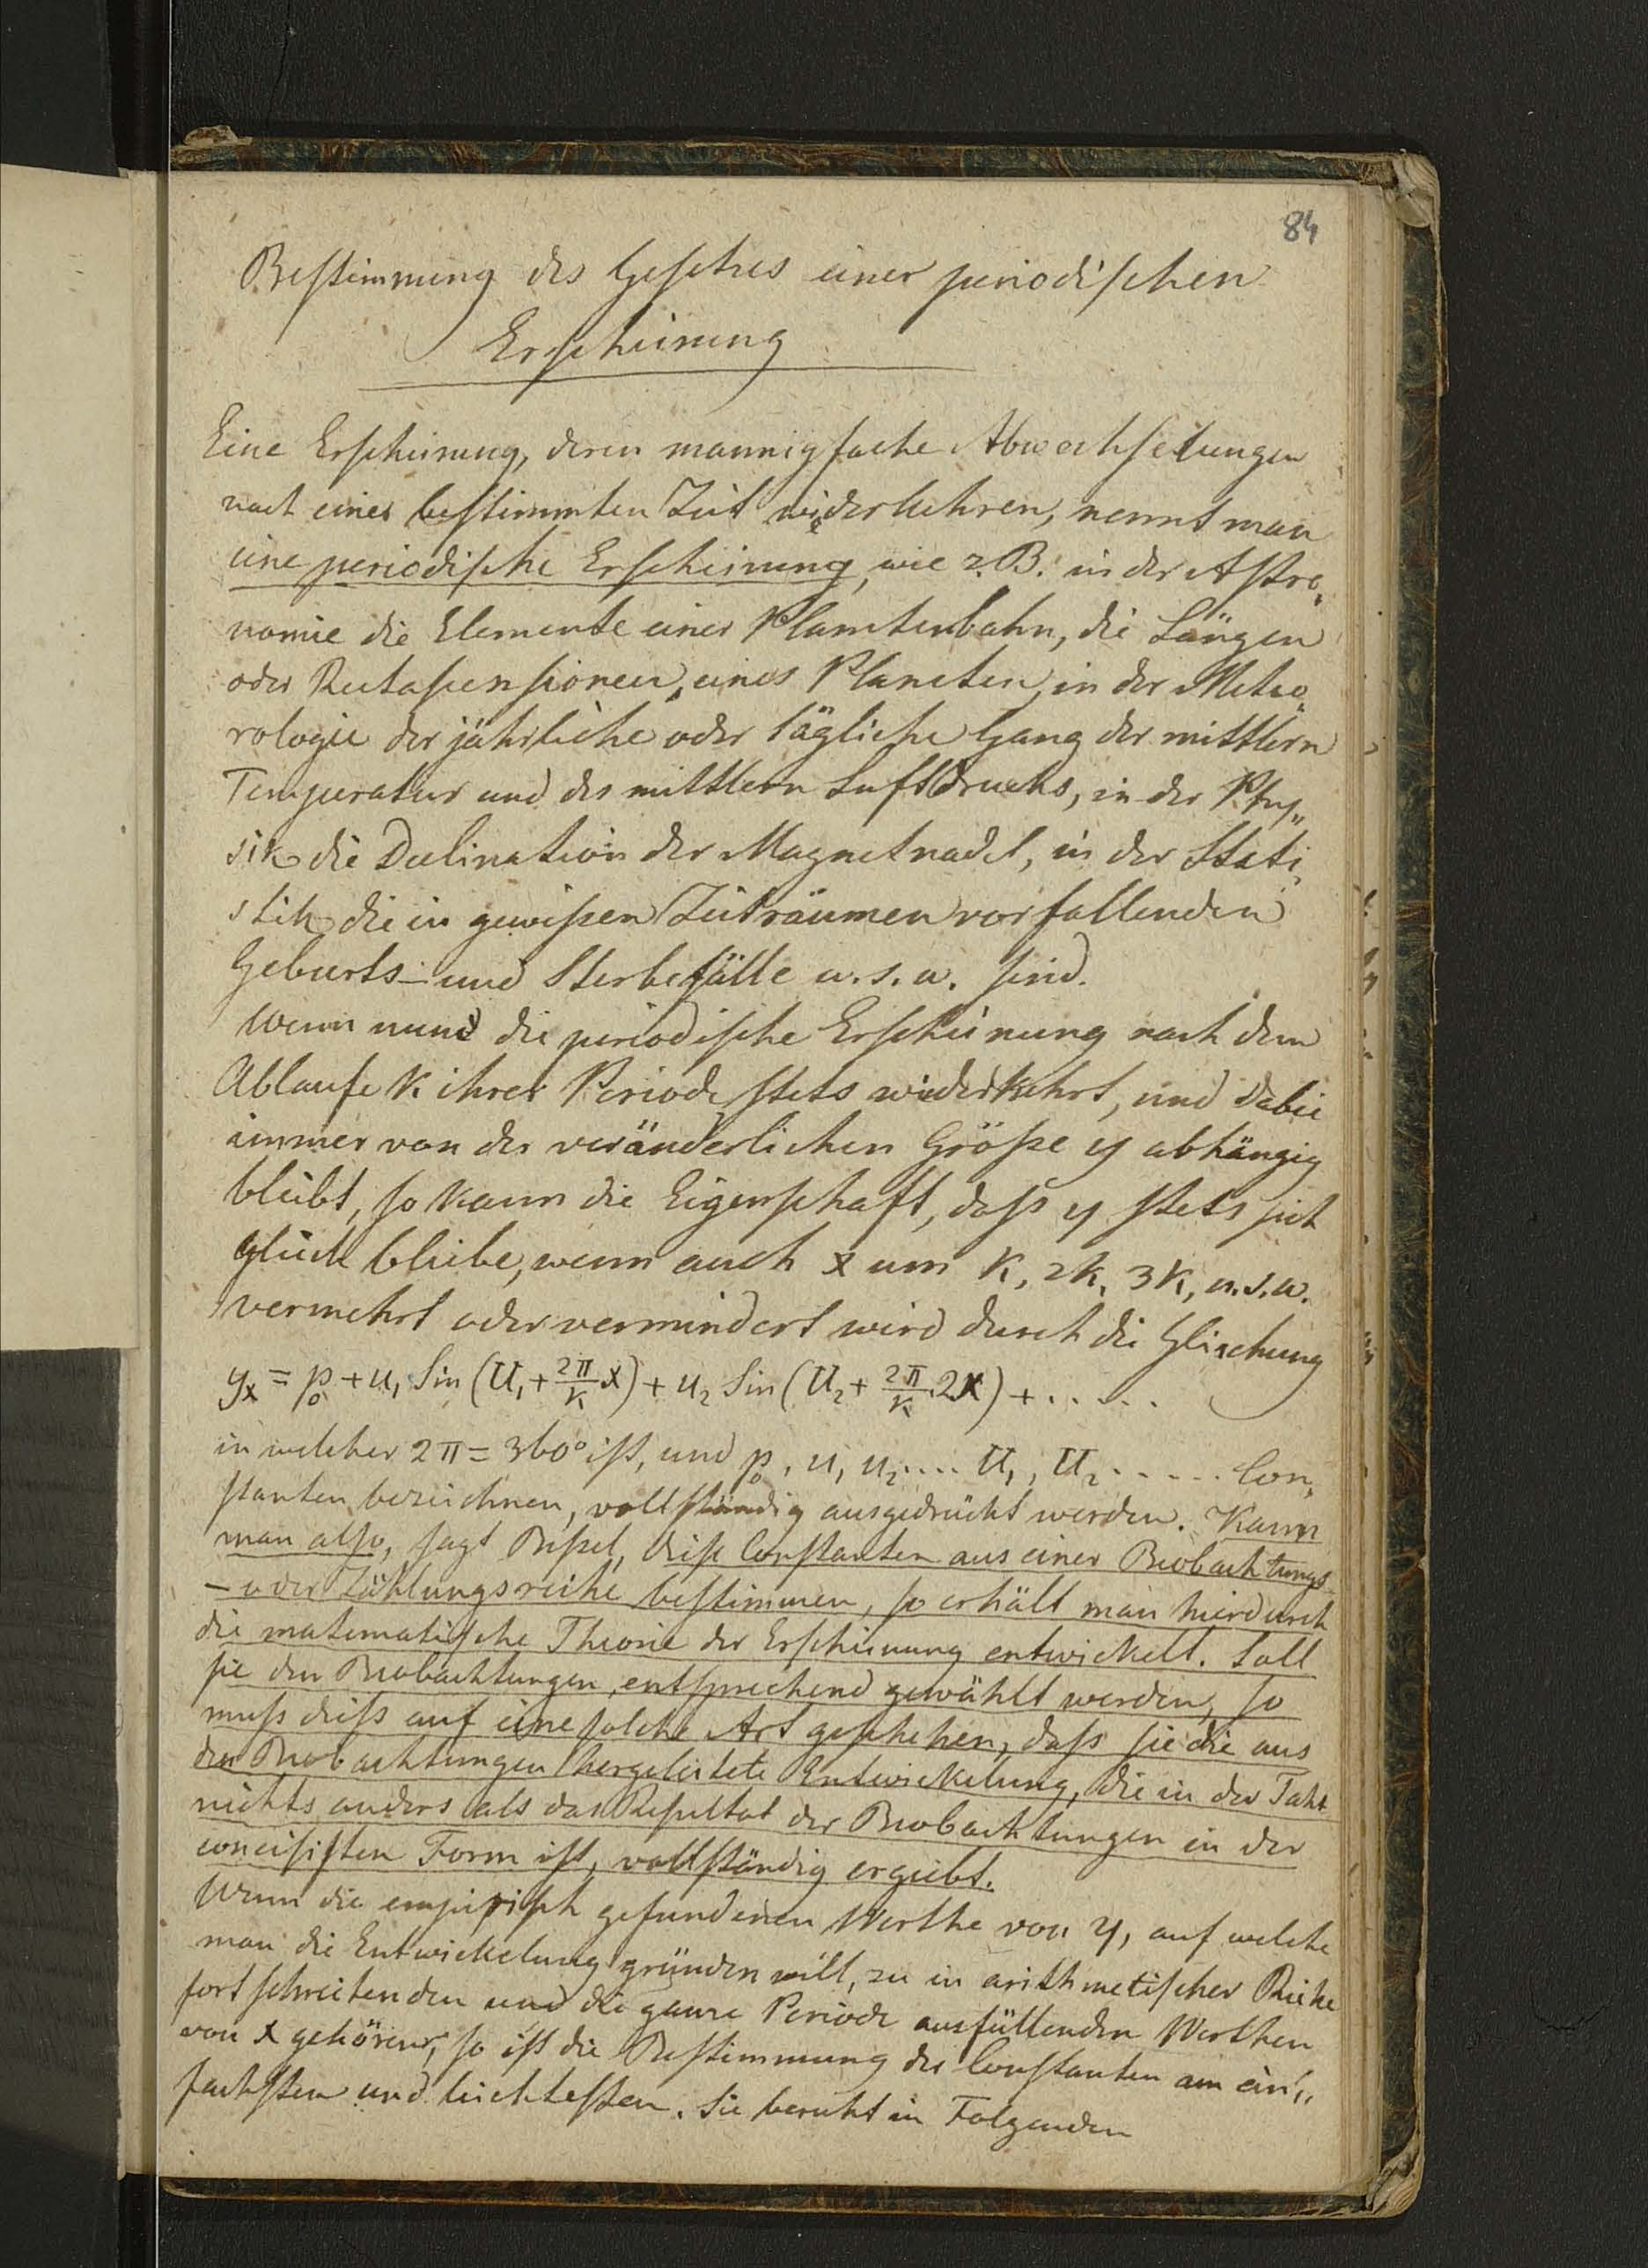 84
Bestimmung des Gesetzes einer periodischen
Erscheinung
Eine Erscheinung, deren mannigfache Abwechselungen
nach einer bestimmten Zeit wiederkehren, nennt man
eine periodische Erscheinung, wie z. B. in der Astro„
nomie die Elemente einer Planetenbahn, die Längen
oder Rectascensionen eines Planeten, in der Meteo„
rologie der jährliche oder tägliche Gang der mittlern
Temperatur und des mittlern Luftdrucks, in der Phy„
sik die Declination der Magnetnadel, in der Stati„
stik die in gewißen Zeiträumen vorfallenden
Geburts- und Sterbefälle u. s. w. sind.
Wenn nun die periodische Erscheinung nach dem
Ablaufe k ihrer Periode stets wiederkehrt, und dabei
immer von der veränderlichen Größe y abhängig
bleibt, so kann die Eigenschaft, daß y stets sich
gleich bleibe, wenn auch x um k, 2k, 3k, u. s. w.
vermehrt oder vermindert wird durch die Gleichung
y_x = p_0 + u_1 Sin (U_1 + 2π/k x) + u_2 Sin (U_2 + 2π/k 2x) + .....
in welcher 2π = 360° ist, und p_0, u_1 u_2 .... U_1, U_2 ..... Con„
stanten bezeichnen, vollständig ausgedrückt werden. Kann
man also, sagt Beßel, diese Constanten aus einer Beobachtungs
- oder Zählungsreihe bestimmen, so erhält man hierdurch
die matematische Theorie der Erscheinung entwickelt. Soll
sie den Beobachtungen entsprechend gewählt werden, so
muß dieß auf eine solche Art geschehen, daß sie die aus
den Beobachtungen hergeleitete Entwickelung, die in der That
nichts anders als das Resultat der Beobachtungen in der
concisisten Form ist, vollständig ergiebt.
Wenn die empirisch gefundenen Werthe von y, auf welche
man die Entwickelung gründen will, zu in arithmetischer Reihe
fortschreitenden und die ganze Periode ausfüllenden Werthen
von x gehören, so ist die Bestimmung der Constanten am ein„
fachsten und leichtesten. Sie beruht in Folgenden